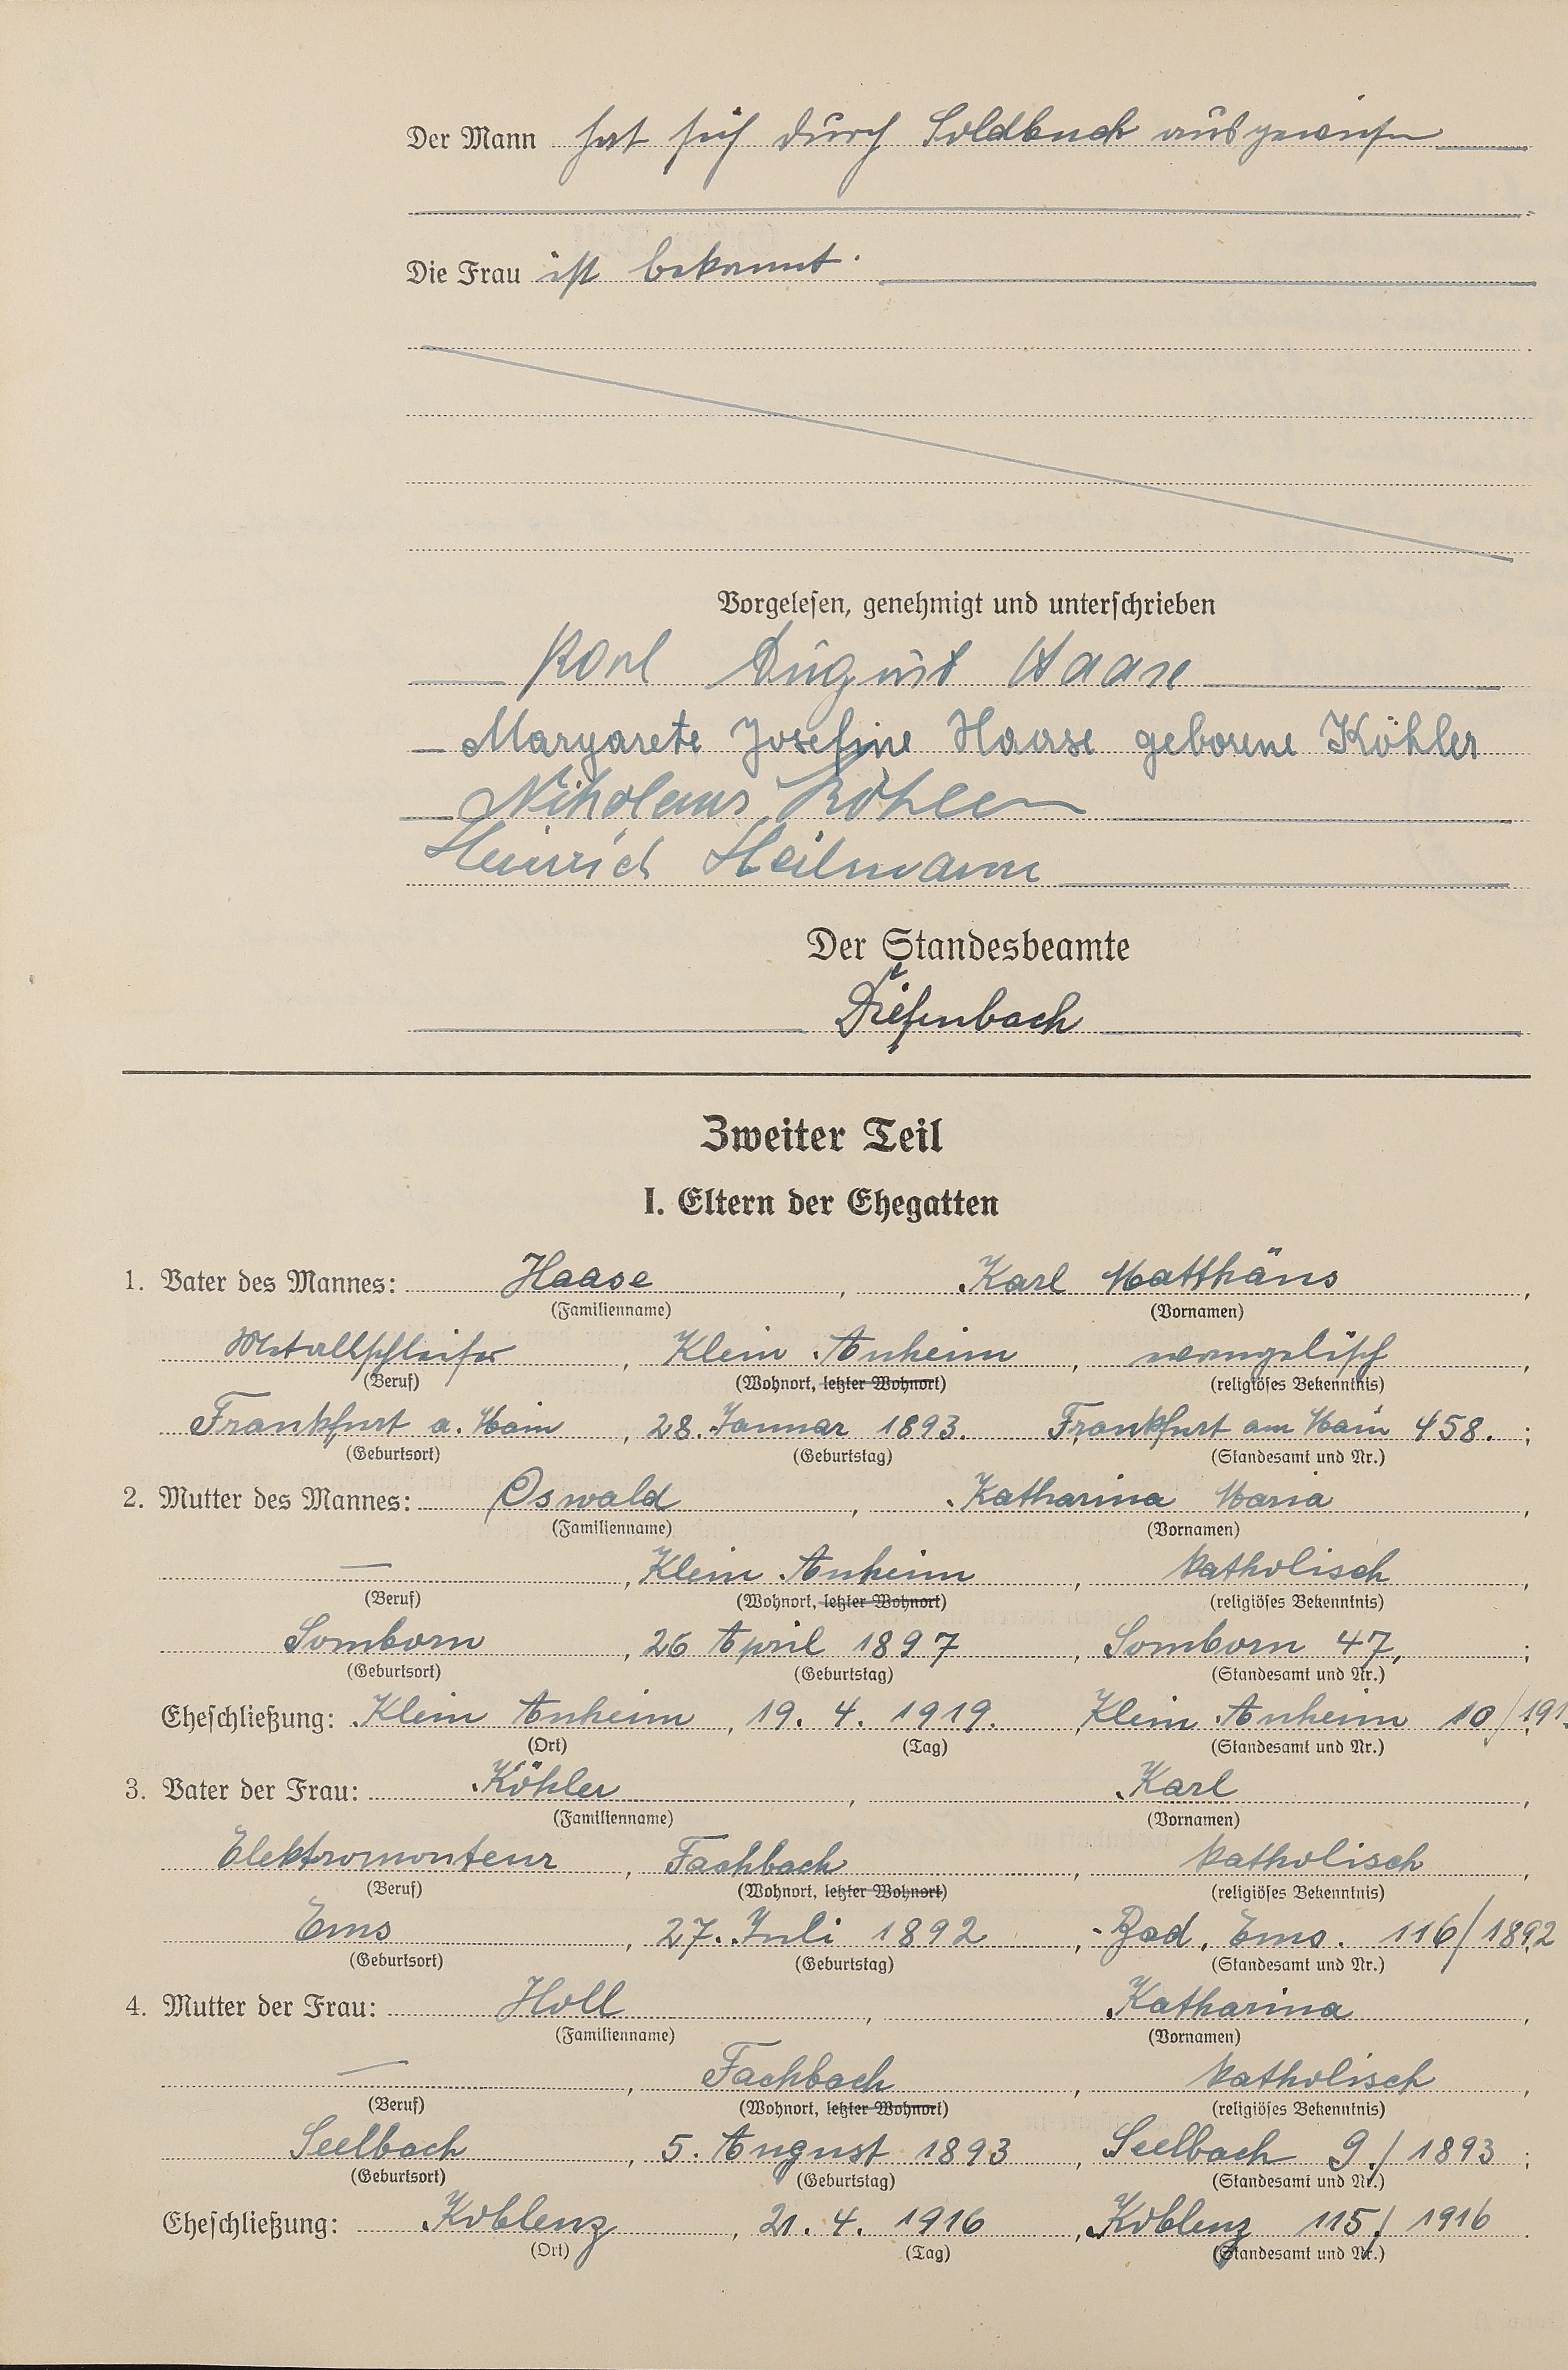 Der Mann hat sich durch Soldbuch ausgewiesen
Die Frau ist bekannt.
Vorgelesen, genehmigt und unterschrieben
Karl August Haase
Margarete Josefine Haase geborene Köhler
Nikolaus Köhler
Heinrich Heilmann
Der Standesbeamte
Diefenbach
Zweiter Teil
I. Eltern der Ehegatten
1. Vater des Mannes: Haase, Karl Matthäus,
(Familienname) (Vornamen)
Metallschleifer, Klein Auheim, evangelisch,
(Beruf) (Wohnort, letzter Wohnort) (religiöses Bekenntnis)
Frankfurt a. Main, 28. Januar 1893. Frankfurt am Main 458.;
(Geburtsort) (Geburtstag) (Standesamt und Nr.)
2. Mutter des Mannes: Oswald, Katharina Maria,
(Familienname) (Vornamen)
—, Klein Auheim, katholisch,
(Beruf) (Wohnort, letzter Wohnort) (religiöses Bekenntnis)
Somborn, 26 April 1897, Somborn 47,;
(Geburtsort) (Geburtstag) (Standesamt und Nr.)
Eheschließung: Klein Auheim, 19. 4. 1919., Klein Auheim 10/191
(Ort) (Tag) (Standesamt und Nr.)
3. Vater der Frau: Köhler, Karl,
(Familienname) (Vornamen)
Elektromonteur, Fachbach, katholisch,
(Beruf) (Wohnort, letzter Wohnort) (religiöses Bekenntnis)
Ems, 27. Juli 1892, Bad. Ems. 116/1892
(Geburtsort) (Geburtstag) (Standesamt und Nr.)
4. Mutter der Frau: Holl, Katharina,
(Familienname) (Vornamen)
—, Fachbach, katholisch,
(Beruf) (Wohnort, letzter Wohnort) (religiöses Bekenntnis)
Seelbach, 5. August 1893, Seelbach 9./1893;
(Geburtsort) (Geburtstag) (Standesamt und Nr.)
Eheschließung: Koblenz, 21. 4. 1916, Koblenz 115/1916.
(Ort) (Tag) (Standesamt und Nr.)